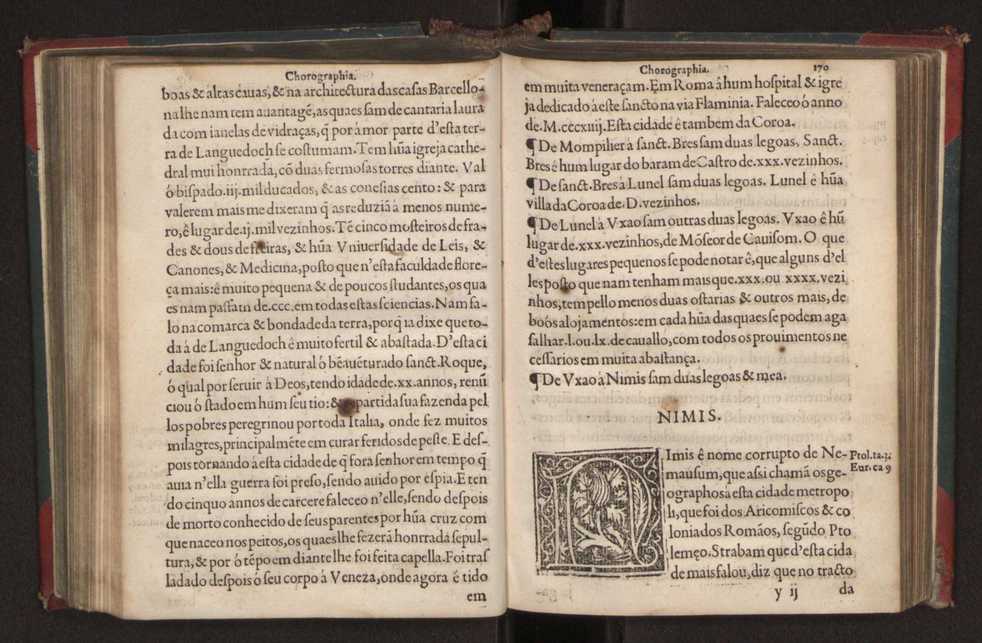 Chorographia.
boas & altas cauas, & na architectura das casas Barcello-
na lhe nam tem auantagẽ, as quaes sam de cantaria laura
da com ianelas de vidraças, q̃ por â mor parte d'esta ter-
ra de Languedoch se costumam. Tem hũa igreja cathe-
dral mui honrrada, cõ duas fermosas torres diante. Val
ó bispado .iij. mil ducados, & as conesias cento: & para
valerem mais me dixeram q̃ as reduziã à menos nume-
ro, ê lugar de .ij. mil vezinhos. Tẽ cinco mosteiros de fra-
des & dous de freiras, & hũa Vniuersidade de Leis, &
Canones, & Medicina, posto que n'esta faculdade flore-
ça mais: ê muito pequena & de poucos studantes, os qua
es nam passam de .ccc. em todas estas sciencias. Nam fa-
lo na comarca & bondade da terra, porq̃ ia dixe que to-
da â de Languedoch ê muito fertil & abastada. D'esta ci
dade foi senhor & natural ó bẽauẽturado sanct. Roque,
ó qual por seruir à Deos, tendo idade de .xx. annos, renũ
ciou ó stado em hum seu tio: & repartida sua fazenda pel
los pobres peregrinou por toda Italia, onde fez muitos
milagres, principalmẽte em curar feridos de peste. E des-
pois tornando à esta cidade de q̃ fora senhor em tempo q̃
auia n'ella guerra foi preso, sendo auido por espia. E ten
do cinquo annos de carcere faleceo n'elle, sendo despois
de morto conhecido de seus parentes por hũa cruz com
que naceo nos peitos, os quaes lhe fezerã honrrada sepul-
tura, & por ó tẽpo em diante lhe foi feita capella. Foi tras
ladado despois ó seu corpo à Veneza, onde agora é tido
em
Chorographia. 170
em muita veneraçam. Em Roma â hum hospital & igre
ja dedicado à este sancto na via Flaminia. Faleceo ó anno
de .M.cccxiiij. Esta cidade ê tambem da Coroa.
¶ De Mompilier à sanct. Bres sam duas legoas, Sanct.
Bres ê hum lugar do baram de Castro de .xxx. vezinhos.
¶ De sanct. Bres à Lunel sam duas legoas. Lunel ê hũa
villa da Coroa de .D. vezinhos.
¶ De Lunel à Vxao sam outras duas legoas. Vxao ê hũ
lugar de .xxx. vezinhos, de Mõseor de Cauisom. O que
d'estes lugares pequenos se pode notar ê, que alguns d'el
les posto que nam tenham mais que .xxx. ou xxxx. vezi
nhos, tem pello menos duas ostarias & outros mais, de
boõs alojamentos: em cada hũa das quaes se podem aga
salhar .l. ou .lx. de cauallo, com todos os prouimentos ne
cessarios em muita abastança.
¶ De Vxao à Nimis sam duas legoas & mea.
NIMIS.
NImis ê nome corrupto de Ne-
mausum, que assi chamã os ge-
ographos à esta cidade metropo
li, que foi dos Aricomiscos & co
lonia dos Romãos, segũdo Pto
lemęo. Strabam que d'esta cida
de mais falou, diz que no tracto
Ptol. ta. 3.
Eur. ca 9
y ij da